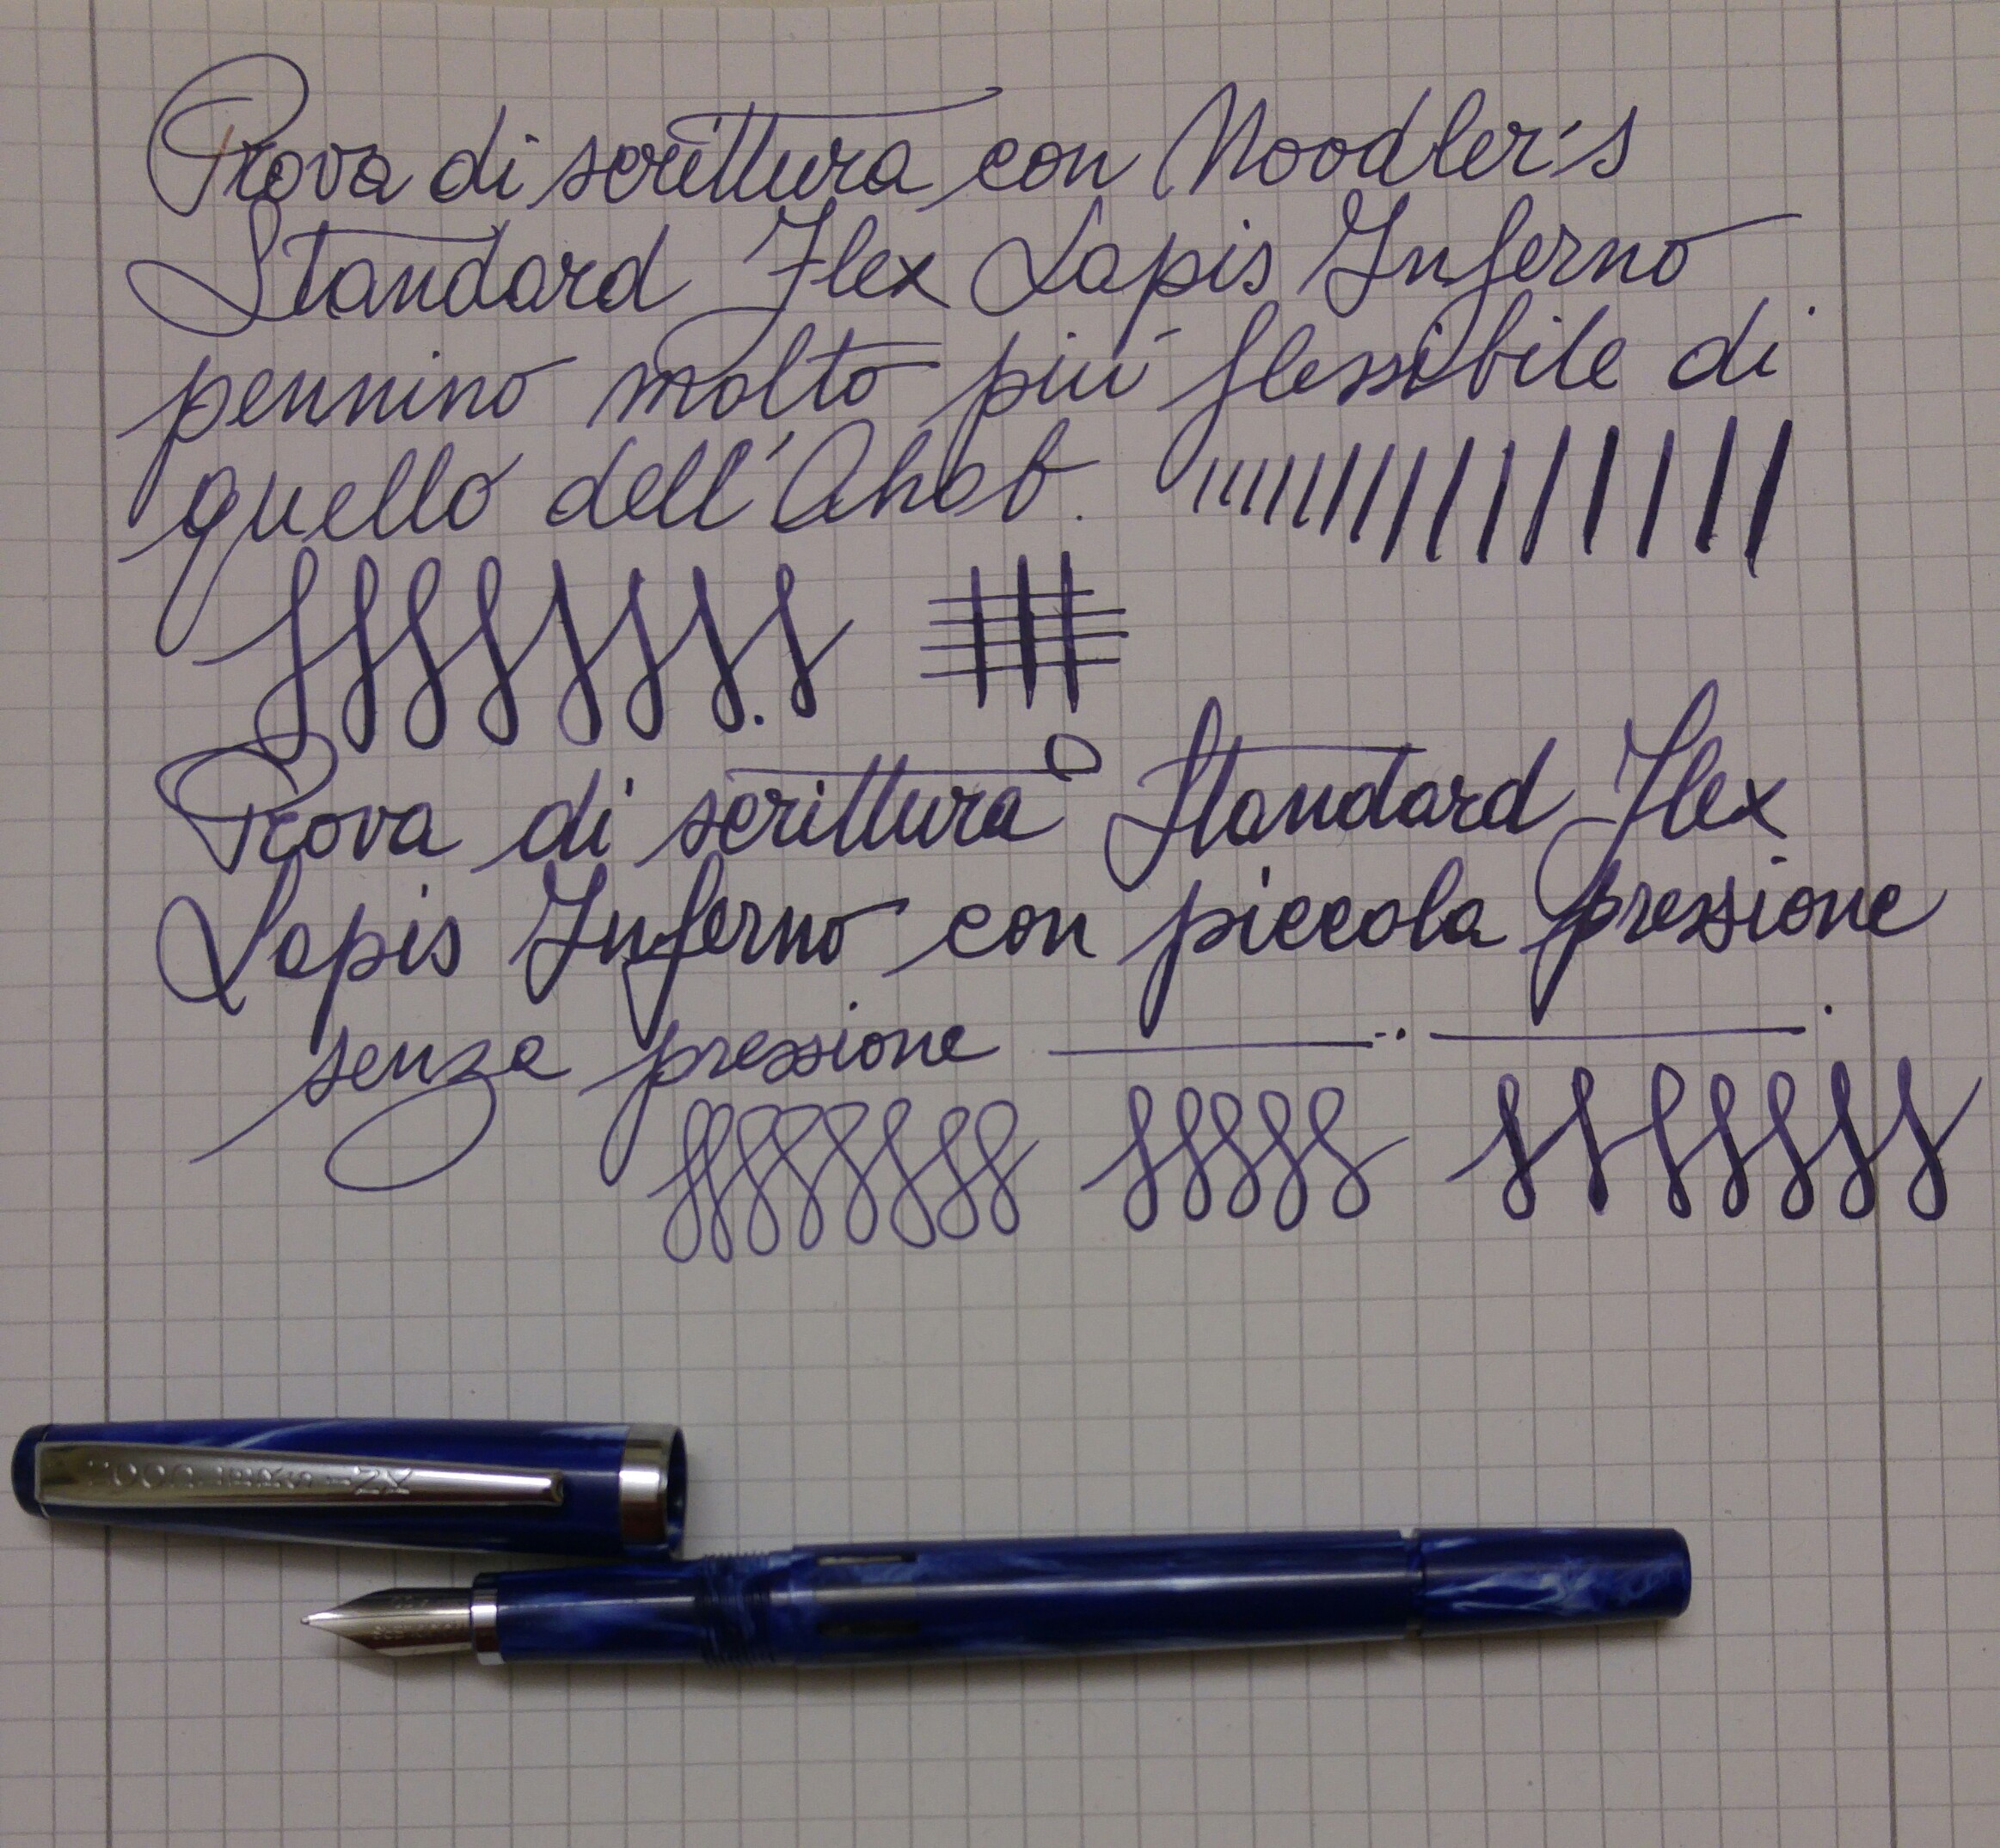 Prova di scrittura con Noodler's
Standard Flex Lapis Inferno
pennino molto più flessibile di
quello dell'Ahab.
Prova di scrittura Standard Flex
Lapis Inferno con piccola pressione
senza pressione
NOODLERS INK